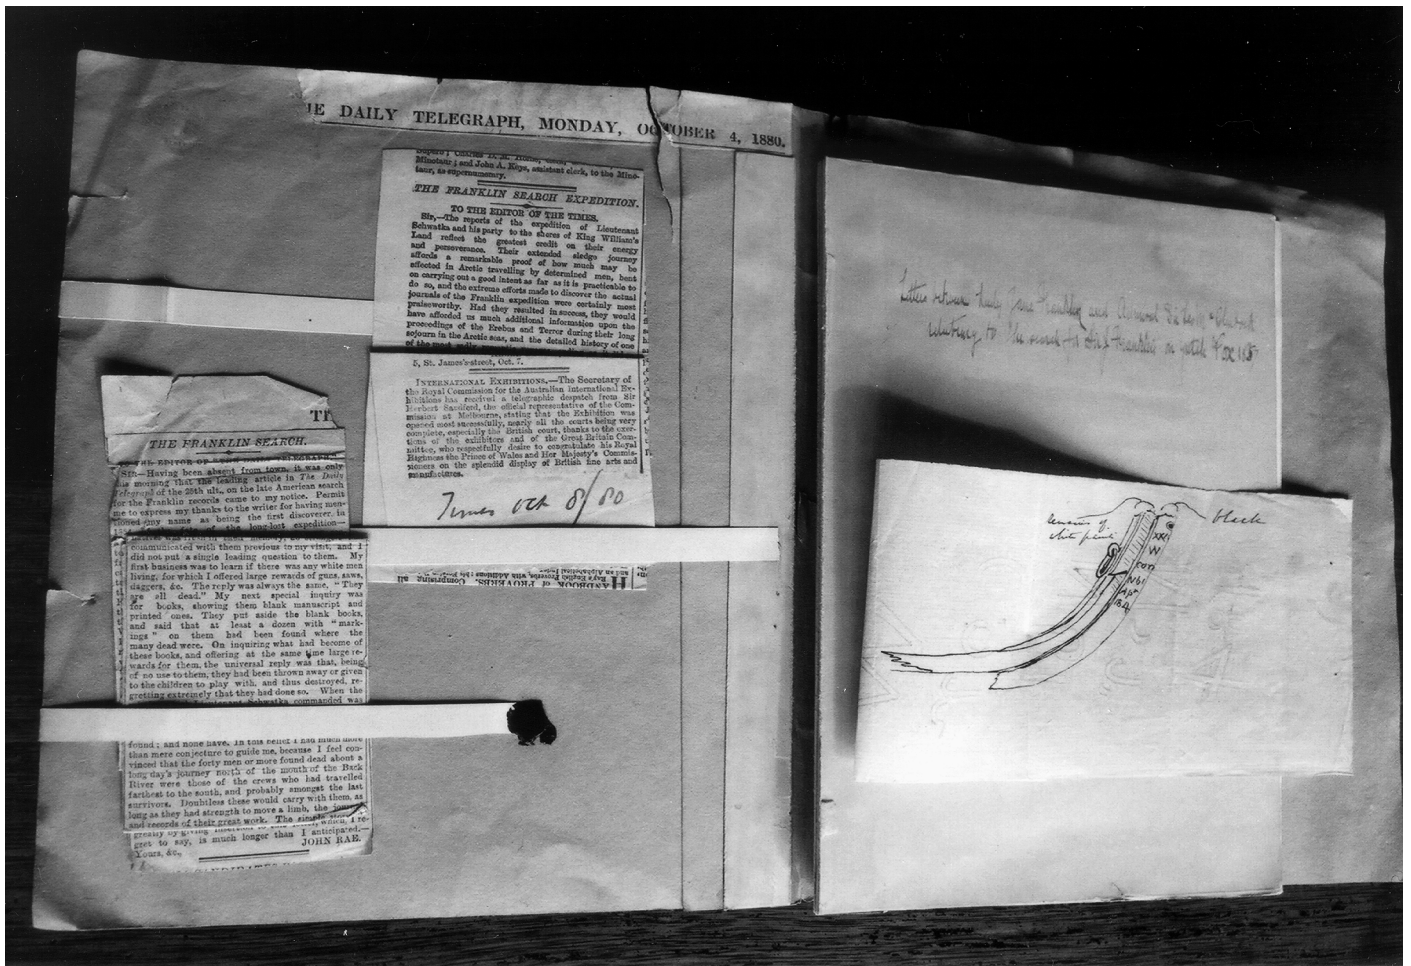 HE DAILY TELEGRAPH, MONDAY, OCTOBER 4, 1880.
Minotaur; and John A. Keys, assistant clerk, to the Mino-
taur, as supernumerary.
THE FRANKLIN SEARCH EXPEDITION.
TO THE EDITOR OF THE TIMES.
Sir,—The reports of the expedition of Lieutenant
Schwatka and his party to the shores of King William's
Land reflect the greatest credit on their energy
and perseverance. Their extended sledge journey
affords a remarkable proof of how much may be
effected in Arctic travelling by determined men, bent
on carrying out a good intent as far as it is practicable to
do so, and the extreme efforts made to discover the actual
journals of the Franklin expedition were certainly most
praiseworthy. Had they resulted in success, they would
have afforded us much additional information upon the
proceedings of the Erebus and Terror during their long
sojourn in the Arctic seas, and the detailed history of one
of the most
5, St. James's-street, Oct. 7.
INTERNATIONAL EXHIBITIONS.—The Secretary of
the Royal Commission for the Australian International Ex-
hibitions has received a telegraphic despatch from Sir
Herbert Sandford, the official representative of the Com-
mission at Melbourne, stating that the Exhibition was
opened most successfully, nearly all the courts being very
complete, especially the British court, thanks to the exer-
tions of the exhibitors and of the Great Britain Com-
mittee, who respectfully desire to congratulate his Royal
Highness the Prince of Wales and Her Majesty's Commis-
sioners on the splendid display of British fine arts and
manufactures.
Times Oct 8/80
HANDBOOK of PROVERBS. Comprising all
TH
THE FRANKLIN SEARCH.
TO THE EDITOR OF
SIR—Having been absent from town, it was only
this morning that the leading article in The Daily
Telegraph of the 25th ult., on the late American search
for the Franklin records came to my notice. Permit
me to express my thanks to the writer for having men-
tioned my name as being the first discoverer, in
of the long-lost expedition—
communicated with them previous to my visit, and I
did not put a single leading question to them. My
first business was to learn if there was any white men
living, for which I offered large rewards of guns, saws,
daggers, &c. The reply was always the same, "They
are all dead." My next special inquiry was
for books, showing them blank manuscript and
printed ones. They put aside the blank books,
and said that at least a dozen with "mark-
ings" on them had been found where the
many dead were. On inquiring what had become of
these books, and offering at the same time large re-
wards for them, the universal reply was that, being
of no use to them, they had been thrown away or given
to the children to play with, and thus destroyed, re-
gretting extremely that they had done so. When the
Schwatka commanded was
found; and none have. In this belief I had much more
than mere conjecture to guide me, because I feel con-
vinced that the forty men or more found dead about a
long day's journey north of the mouth of the Back
River were those of the crews who had travelled
farthest to the south, and probably amongst the last
survivors. Doubtless these would carry with them, as
long as they had strength to move a limb, the
and records of their great work. The simple
which, I re-
gret to say, is much longer than I anticipated.—
Yours, &c., JOHN RAE.
Letters between Lady Jane Franklin and
relating to the search for Franklin
remains of
white paint
black